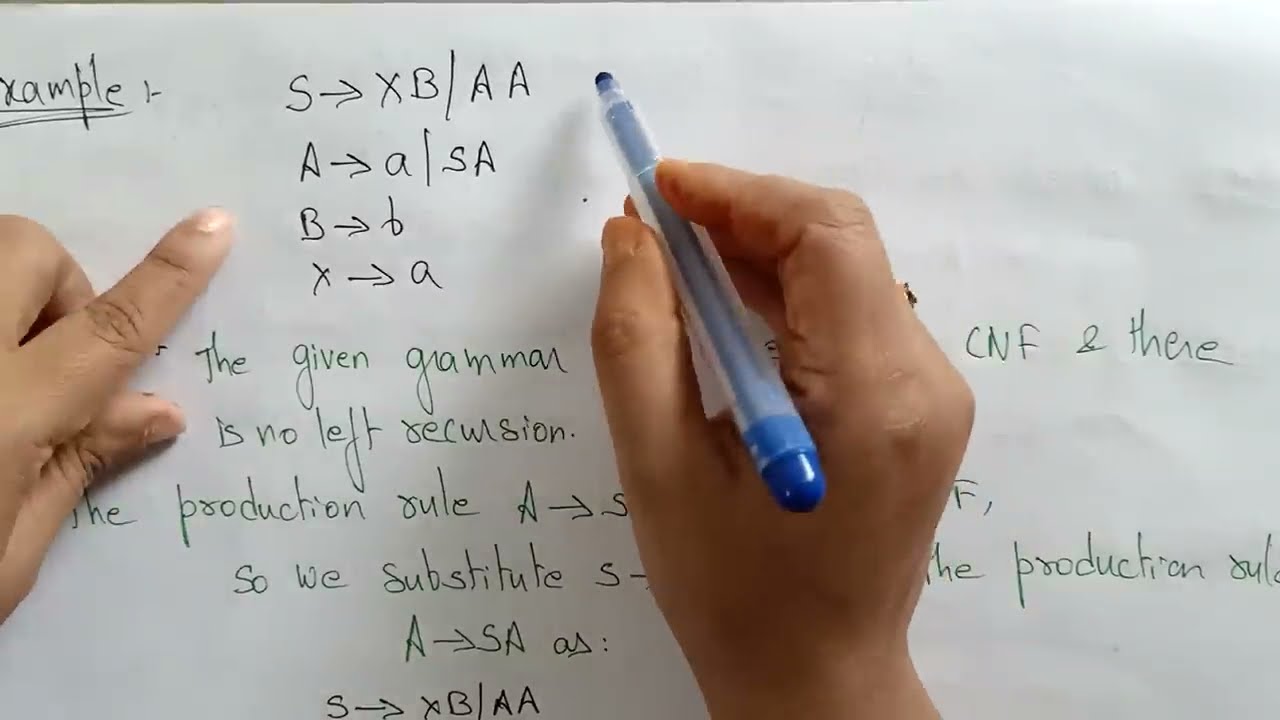 xample :-
S → XB | AA
A → a | SA
B → b
X → a
The given grammar CNF & there
is no left recursion.
The production rule A → S F,
so we substitute S → the production rule
A → SA as:
S → XB | AA